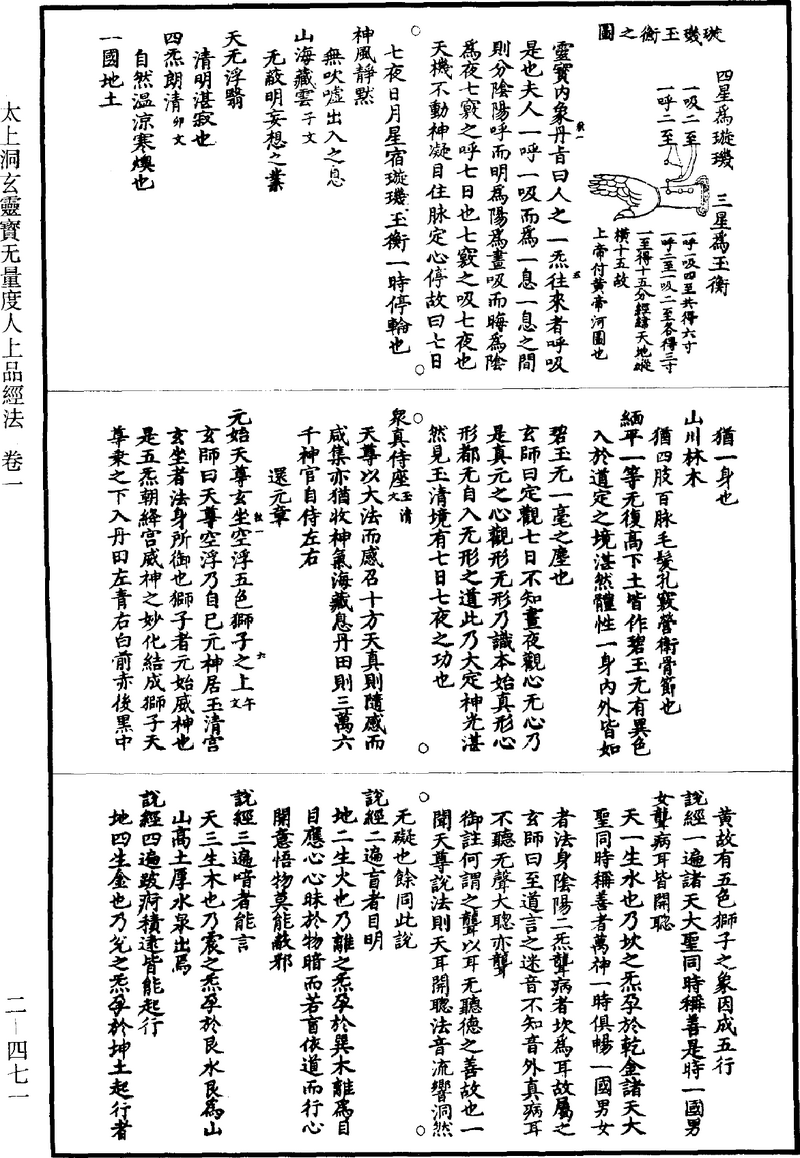 太上洞玄靈寶无量度人上品經法 卷一
二—四七一
璇璣玉衡之圖
四星為璇璣 三星為玉衡
一吸二至
一呼二至
一呼一吸四至共得六寸
一呼二至一吸二至各得三寸
一至得十五分經緯天地縱
橫十五故
上帝付黃帝河圖也
靈寶內象丹旨曰人之一炁往來者呼吸
是也夫人一呼一吸而為一息一息之間
則分陰陽呼而明為陽為晝吸而晦為陰
為夜七竅之呼七日也七竅之吸七夜也
天機不動神凝目住脉定心停故曰七日
七夜日月星宿璇璣玉衡一時停輪也
神風靜默
無吹噓出入之息
山海藏雲子文
无蔽明妄想之業
天无浮翳
清明湛寂也
四炁朗清卯文
自然溫涼寒燠也
一國地土
猶一身也
山川林木
猶四肢百脉毛髮孔竅營衛骨節也
緬平一等无復高下土皆作碧玉无有異色
入於道定之境湛然體性一身內外皆如
碧玉无一毫之塵也
玄師曰定觀七日不知晝夜觀心无心乃
是真元之心觀形无形乃識本始真形心
形都无自入无形之道此乃大定神光湛
然見玉清境有七日七夜之功也
眾真侍座玉清文
天尊以大法而感召十方天真則隨感而
咸集亦猶收神氣海藏息丹田則三萬六
千神官自侍左右
還元章
元始天尊玄坐空浮五色獅子之上午文
玄師曰天尊空浮乃自己元神居玉清宮
玄坐者法身所御也獅子者元始威神也
是五炁朝絳宮威神之妙化結成獅子天
尊乘之下入丹田左青右白前赤後黑中
黃故有五色獅子之象因成五行
說經一遍諸天大聖同時稱善是時一國男
女聾病耳皆開聰
天一生水也乃坎之炁孕於乾金諸天大
聖同時稱善者萬神一時俱暢一國男女
者法身陰陽二炁聾病者坎為耳故屬之
玄師曰至道言之迷音不知音外真病耳
不聽无聲大聰亦聾
御註何謂之聾以耳无聽德之善故也一
聞天尊說法則天耳開聰法音流響洞然
无礙也餘同此說
說經二遍盲者目明
地二生火也乃離之炁孕於巽木離為目
目應心心昧於物暗而若盲依道而行心
開意悟物莫能蔽邪
說經三遍喑者能言
天三生木也乃震之炁孕於艮水艮為山
山高土厚水泉出焉
說經四遍跛疴積逮皆能起行
地四生金也乃兌之炁孕於坤土起行者